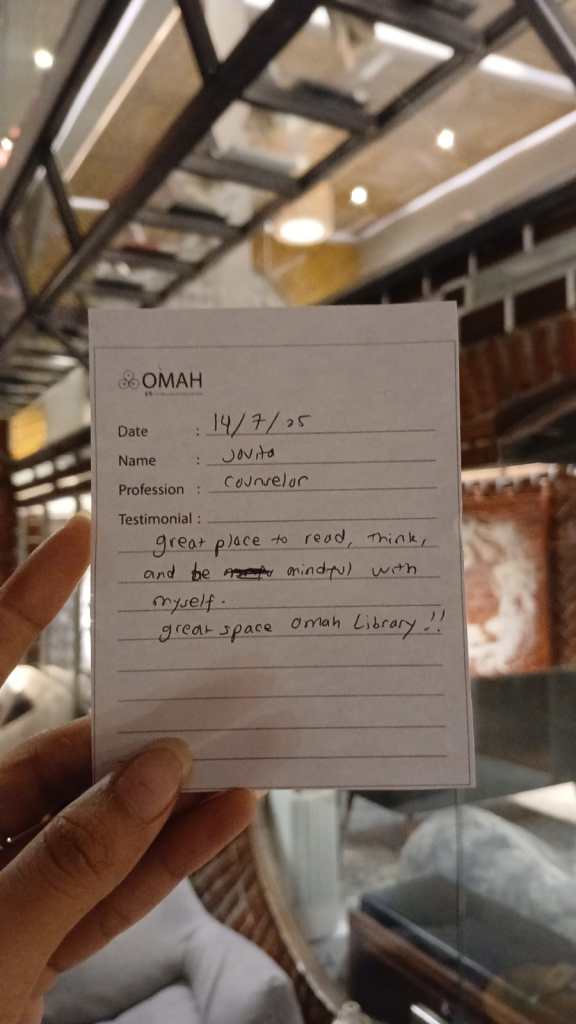 OMAH
Date : 14/7/25
Name : Jovita
Profession : Counselor
Testimonial :
great place to read, think,
and be mindful with
myself.
great space Omah Library!!